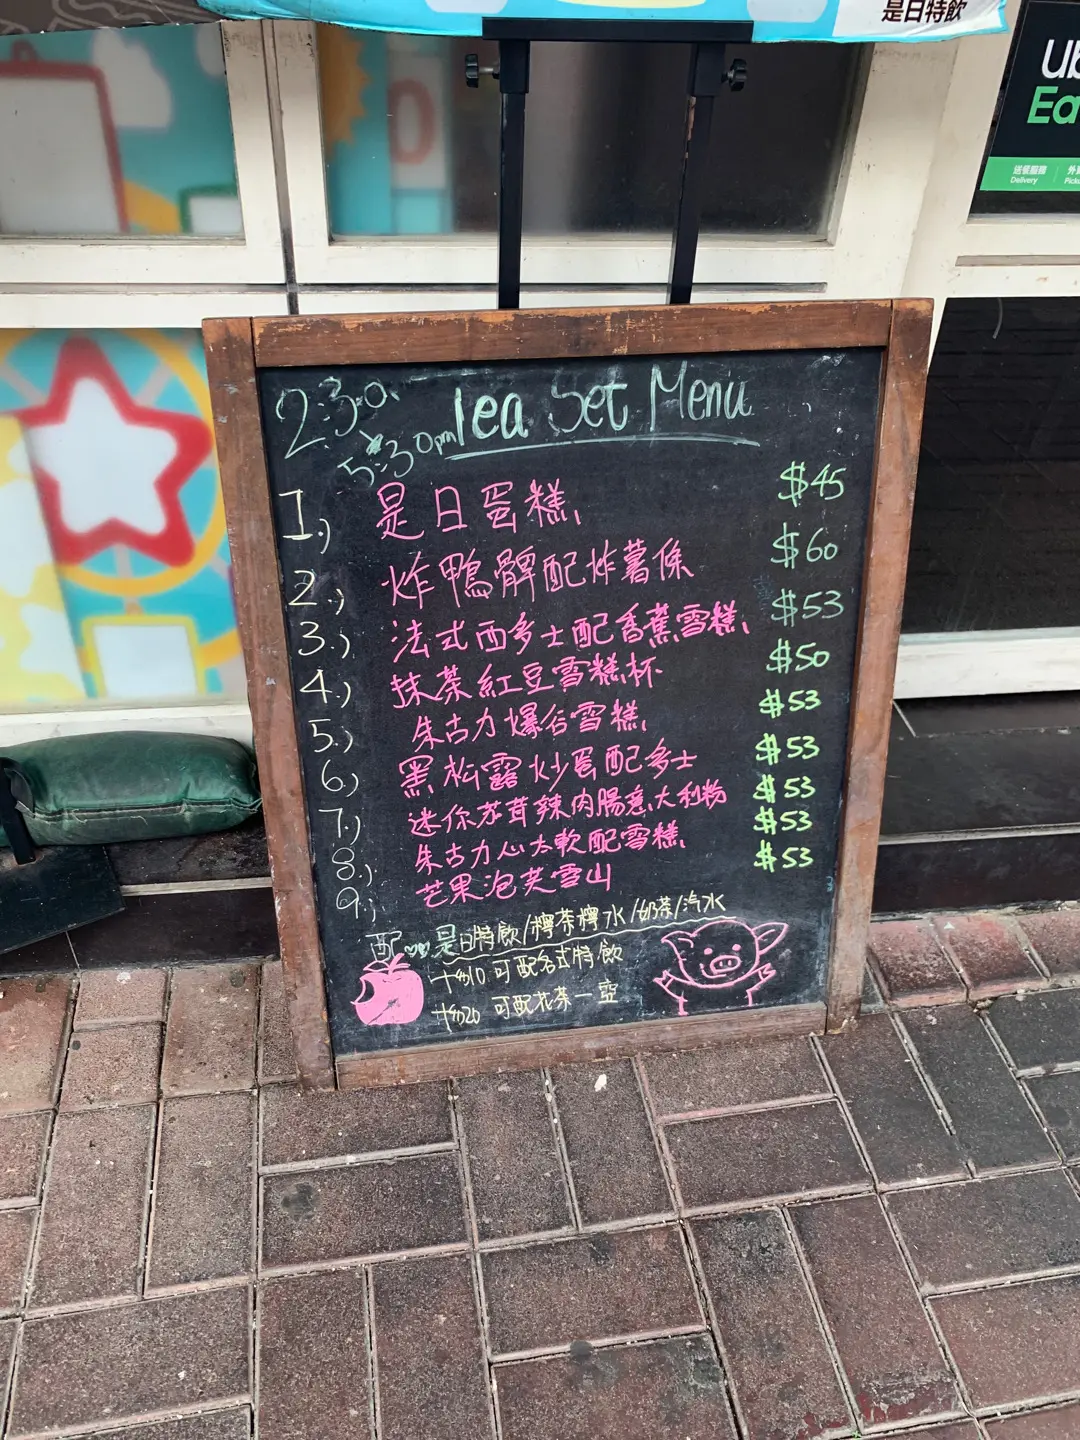 是日特飲
Ub
Ea
送餐服務
Delivery
外
Pick
2:30
5:30pm
Tea Set Menu
1.) 是日蛋糕 $45
2.) 炸鴨髀配炸薯條 $60
3.) 法式西多士配香蕉雪糕 $53
4.) 抹茶紅豆雪糕杯 $50
5.) 朱古力爆谷雪糕 $53
6.) 黑松露炒蛋配多士 $53
7.) 迷你茄茸辣肉腸意大利粉 $53
8.) 朱古力心太軟配雪糕 $53
9.) 芒果泡芙雪山 $53
配 是日特飲/檸茶檸水/奶茶/汽水
+$10 可配各式特飲
+$20 可配花茶一壺